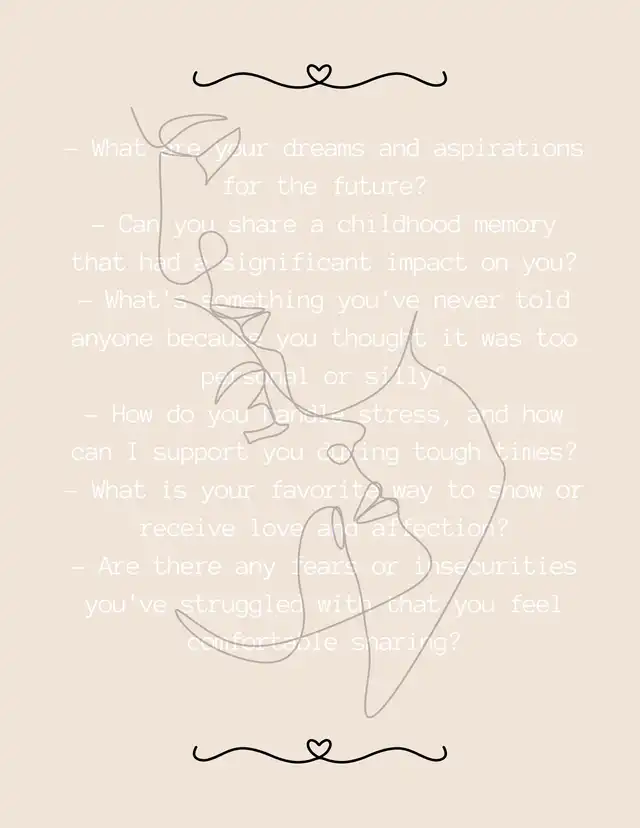 – What are your dreams and aspirations
for the future?
– Can you share a childhood memory
that had a significant impact on you?
– What's something you've never told
anyone because you thought it was too
personal or silly?
– How do you handle stress, and how
can I support you during tough times?
– What is your favorite way to show or
receive love and affection?
– Are there any fears or insecurities
you've struggled with that you feel
comfortable sharing?